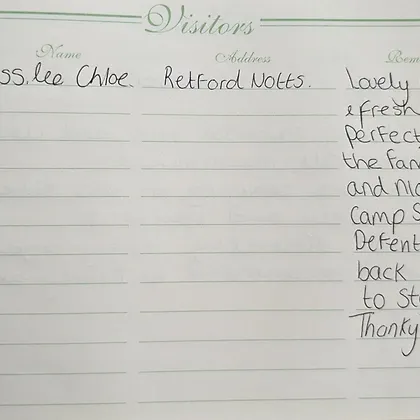 Visitors
Name Address Rem
ss.lee Chloe. Retford Notts. Lovely
& fresh
perfect
the fan
and nic
camp s
Defent
back
to st
Thanky